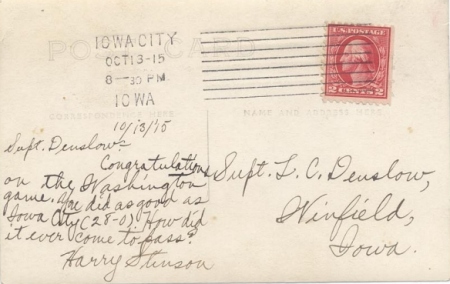 POST CARD
IOWA CITY
OCT 13-15
8-30 PM
IOWA
U.S. POSTAGE
2 CENTS 2
CORRESPONDENCE HERE
NAME AND ADDRESS HERE
10/13/15
Supt. Denslow:
Congratulations
on the Washington
game. You did as good as
Iowa City (28-0). How did
it ever come to pass?
Harry Stinson
Supt. L. C. Denslow,
Winfield,
Iowa.